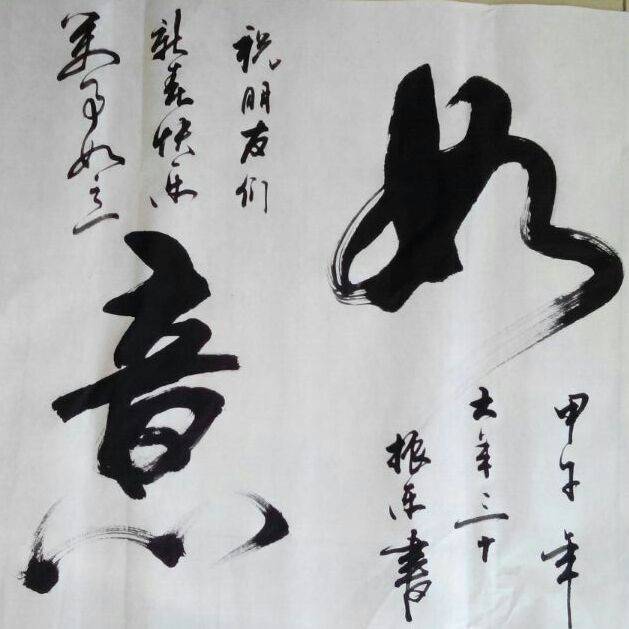 如意
祝朋友们
新春快乐
萬事如意
甲午年
大年三十
振乐書